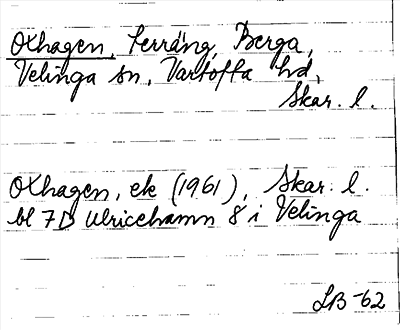 Oxhagen, terräng, Berga,
Velinga sn, Vartofta hd,
Skar. l.
Oxhagen, ek (1961), Skar. l.
bl 7D Ulricehamn 8 i Velinga
LB-62